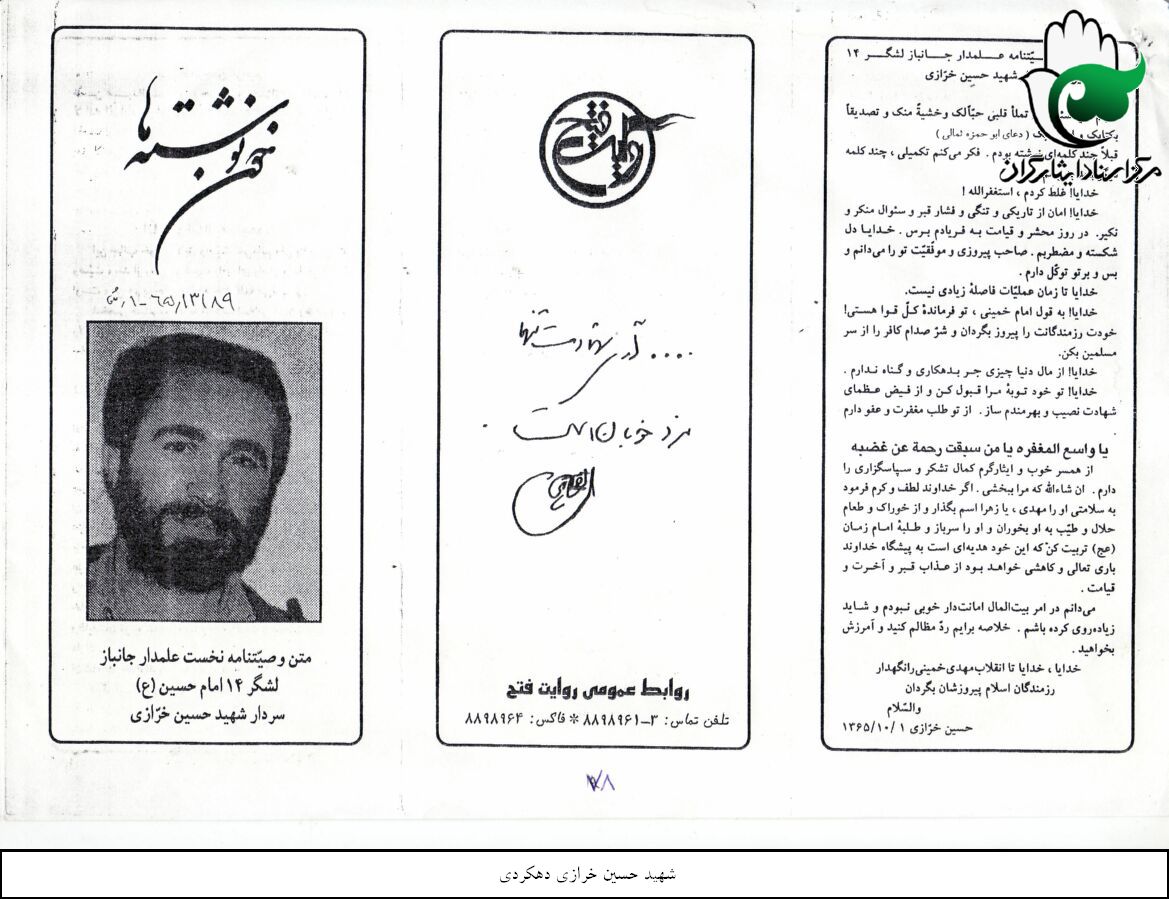 وصیّتنامه علمدار جانباز لشگر ۱۴
شهید حسین خرّازی
تملأ قلبی حبّاًلک وخشیةً منک و تصدیقاً
بکتابک و (دعای ابو حمزه ثمالی)
قبلاً چند کلمه‌ای نوشته بودم. فکر می‌کنم تکمیلی، چند کلمه
خدایا! غلط کردم، استغفرالله!
خدایا! امان از تاریکی و تنگی و فشار قبر و سئوال منکر و
نکیر. در روز محشر و قیامت به فریادم برس. خدایا دل
شکسته و مضطربم. صاحب پیروزی و موفّقیّت تو را می‌دانم و
بس و برتو توکّل دارم.
خدایا تا زمان عملیّات فاصلهٔ زیادی نیست.
خدایا! به قول امام خمینی، تو فرماندهٔ کلّ قوا هستی!
خودت رزمندگانت را پیروز بگردان و شرّ صدام کافر را از سر
مسلمین بکن.
خدایا! از مال دنیا چیزی جر بدهکاری و گناه ندارم.
خدایا! تو خود توبهٔ مرا قبول کن و از فیض عظمای
شهادت نصیب و بهرمندم ساز. از تو طلب مغفرت و عفو دارم
یا واسع المغفره یا من سبقت رحمة عن غضبه
از همسر خوب و ایثارگرم کمال تشکر و سپاسگزاری را
دارم. ان شاءالله که مرا ببخشی. اگر خداوند لطف و کرم فرمود
به سلامتی او را مهدی، یا زهرا اسم بگذار و از خوراک و طعام
حلال و طیّب به او بخوران و او را سرباز و طلبهٔ امام زمان
(عج) تربیت کن که این خود هدیه‌ای است به پیشگاه خداوند
باری تعالی و کاهشی خواهد بود از عذاب قبر و آخرت و
قیامت.
می‌دانم در امر بیت‌المال امانت‌دار خوبی نبودم و شاید
زیاده‌روی کرده باشم. خلاصه برایم ردّ مظالم کنید و آمرزش
بخواهید.
خدایا، خدایا تا انقلاب مهدی خمینی رانگهدار
رزمندگان اسلام پیروزشان بگردان
والسّلام
حسین خرّازی ۱۳۶۵/۱۰/۱
مرکز اسناد ایثارگران
روایت فتح
.... آری شهادت تنها
مزد خوبان است
روابط عمومی روایت فتح
تلفن تماس: ۳-۸۸۹۸۹۶۱ * فاکس: ۸۸۹۸۹۶۴
خون نوشته ها
متن وصیّتنامه نخست علمدار جانباز
لشگر ۱۴ امام حسین (ع)
سردار شهید حسین خرّازی
شهید حسین خرازی دهکردی